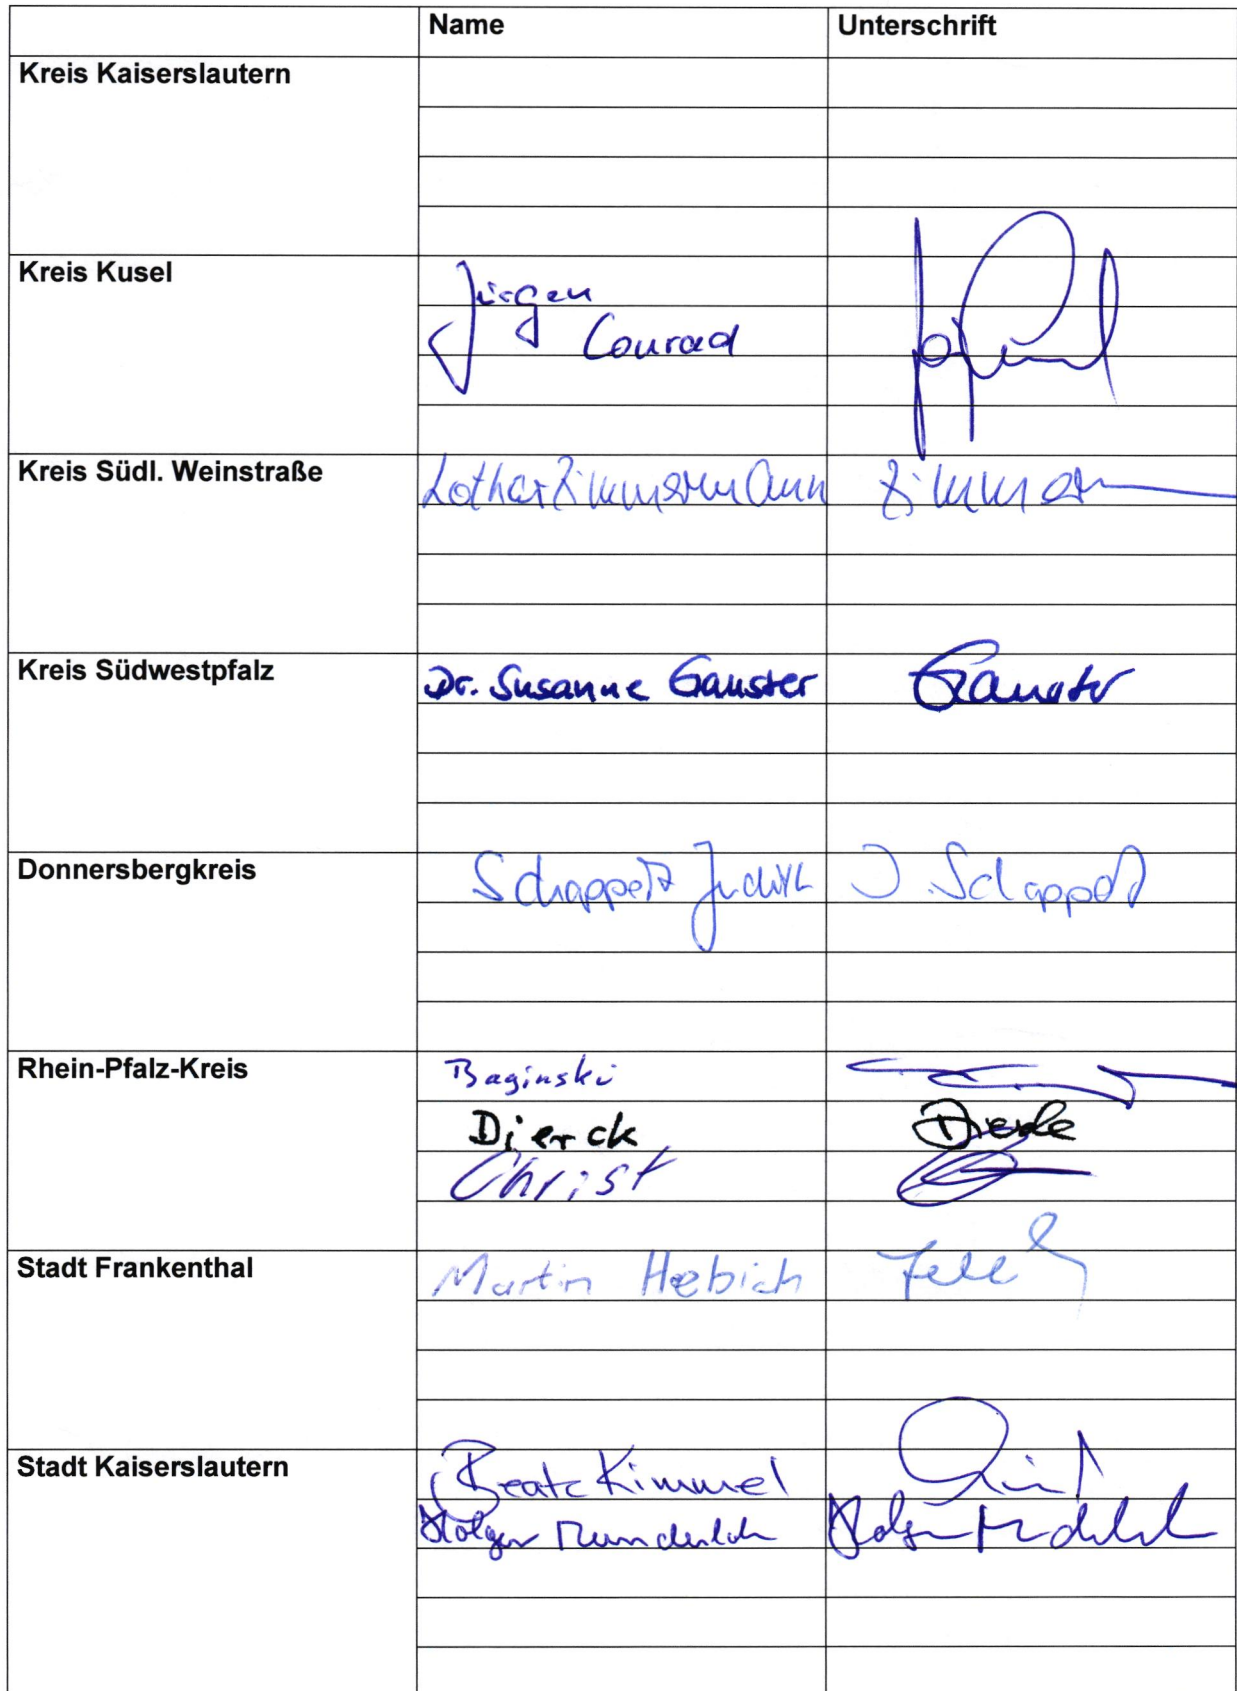 Name Unterschrift
Kreis Kaiserslautern
Kreis Kusel
Jürgen
Conrad
Kreis Südl. Weinstraße Lothar Zimmermann Zimmer
Kreis Südwestpfalz Dr. Susanne Ganster Ganster
Donnersbergkreis Judith J. Schappert
Rhein-Pfalz-Kreis Baginski
Dierck Dierck
Christ
Stadt Frankenthal Martin Hebich
Stadt Kaiserslautern Beate Kimmel
Holger